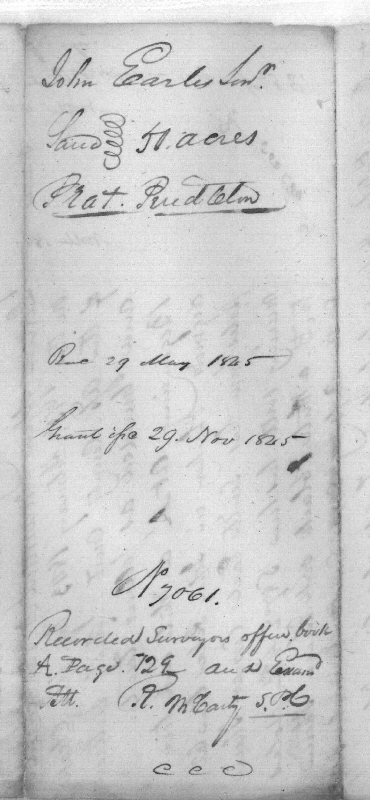 John Earles Senr.
Land 50. acres
Plat. Pendleton
Rec 29 May 1845
Grant iss 29. Nov 1845
No 7061.
Recorded Surveyors office, book
A. Page. 729 and Examd
Att. R. McCarty S.P.C